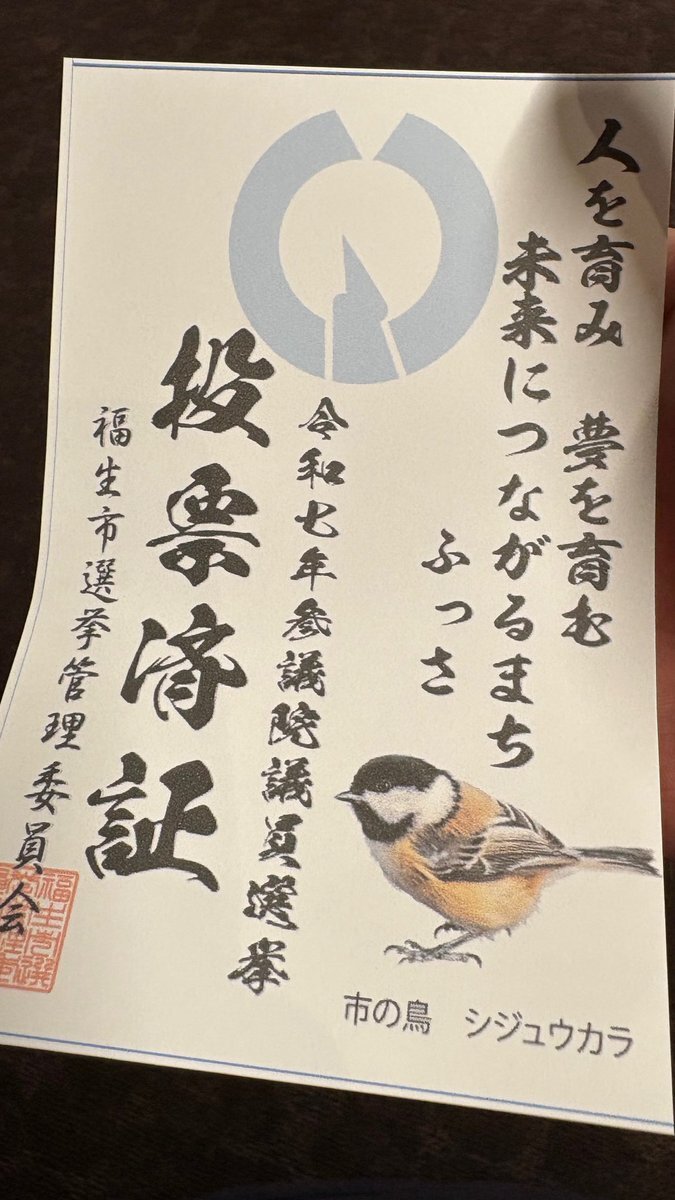 人を育み　夢を育む
未来につながるまち
ふっさ
令和七年参議院議員選挙
投票済証
福生市選挙管理委員会
市の鳥　シジュウカラ